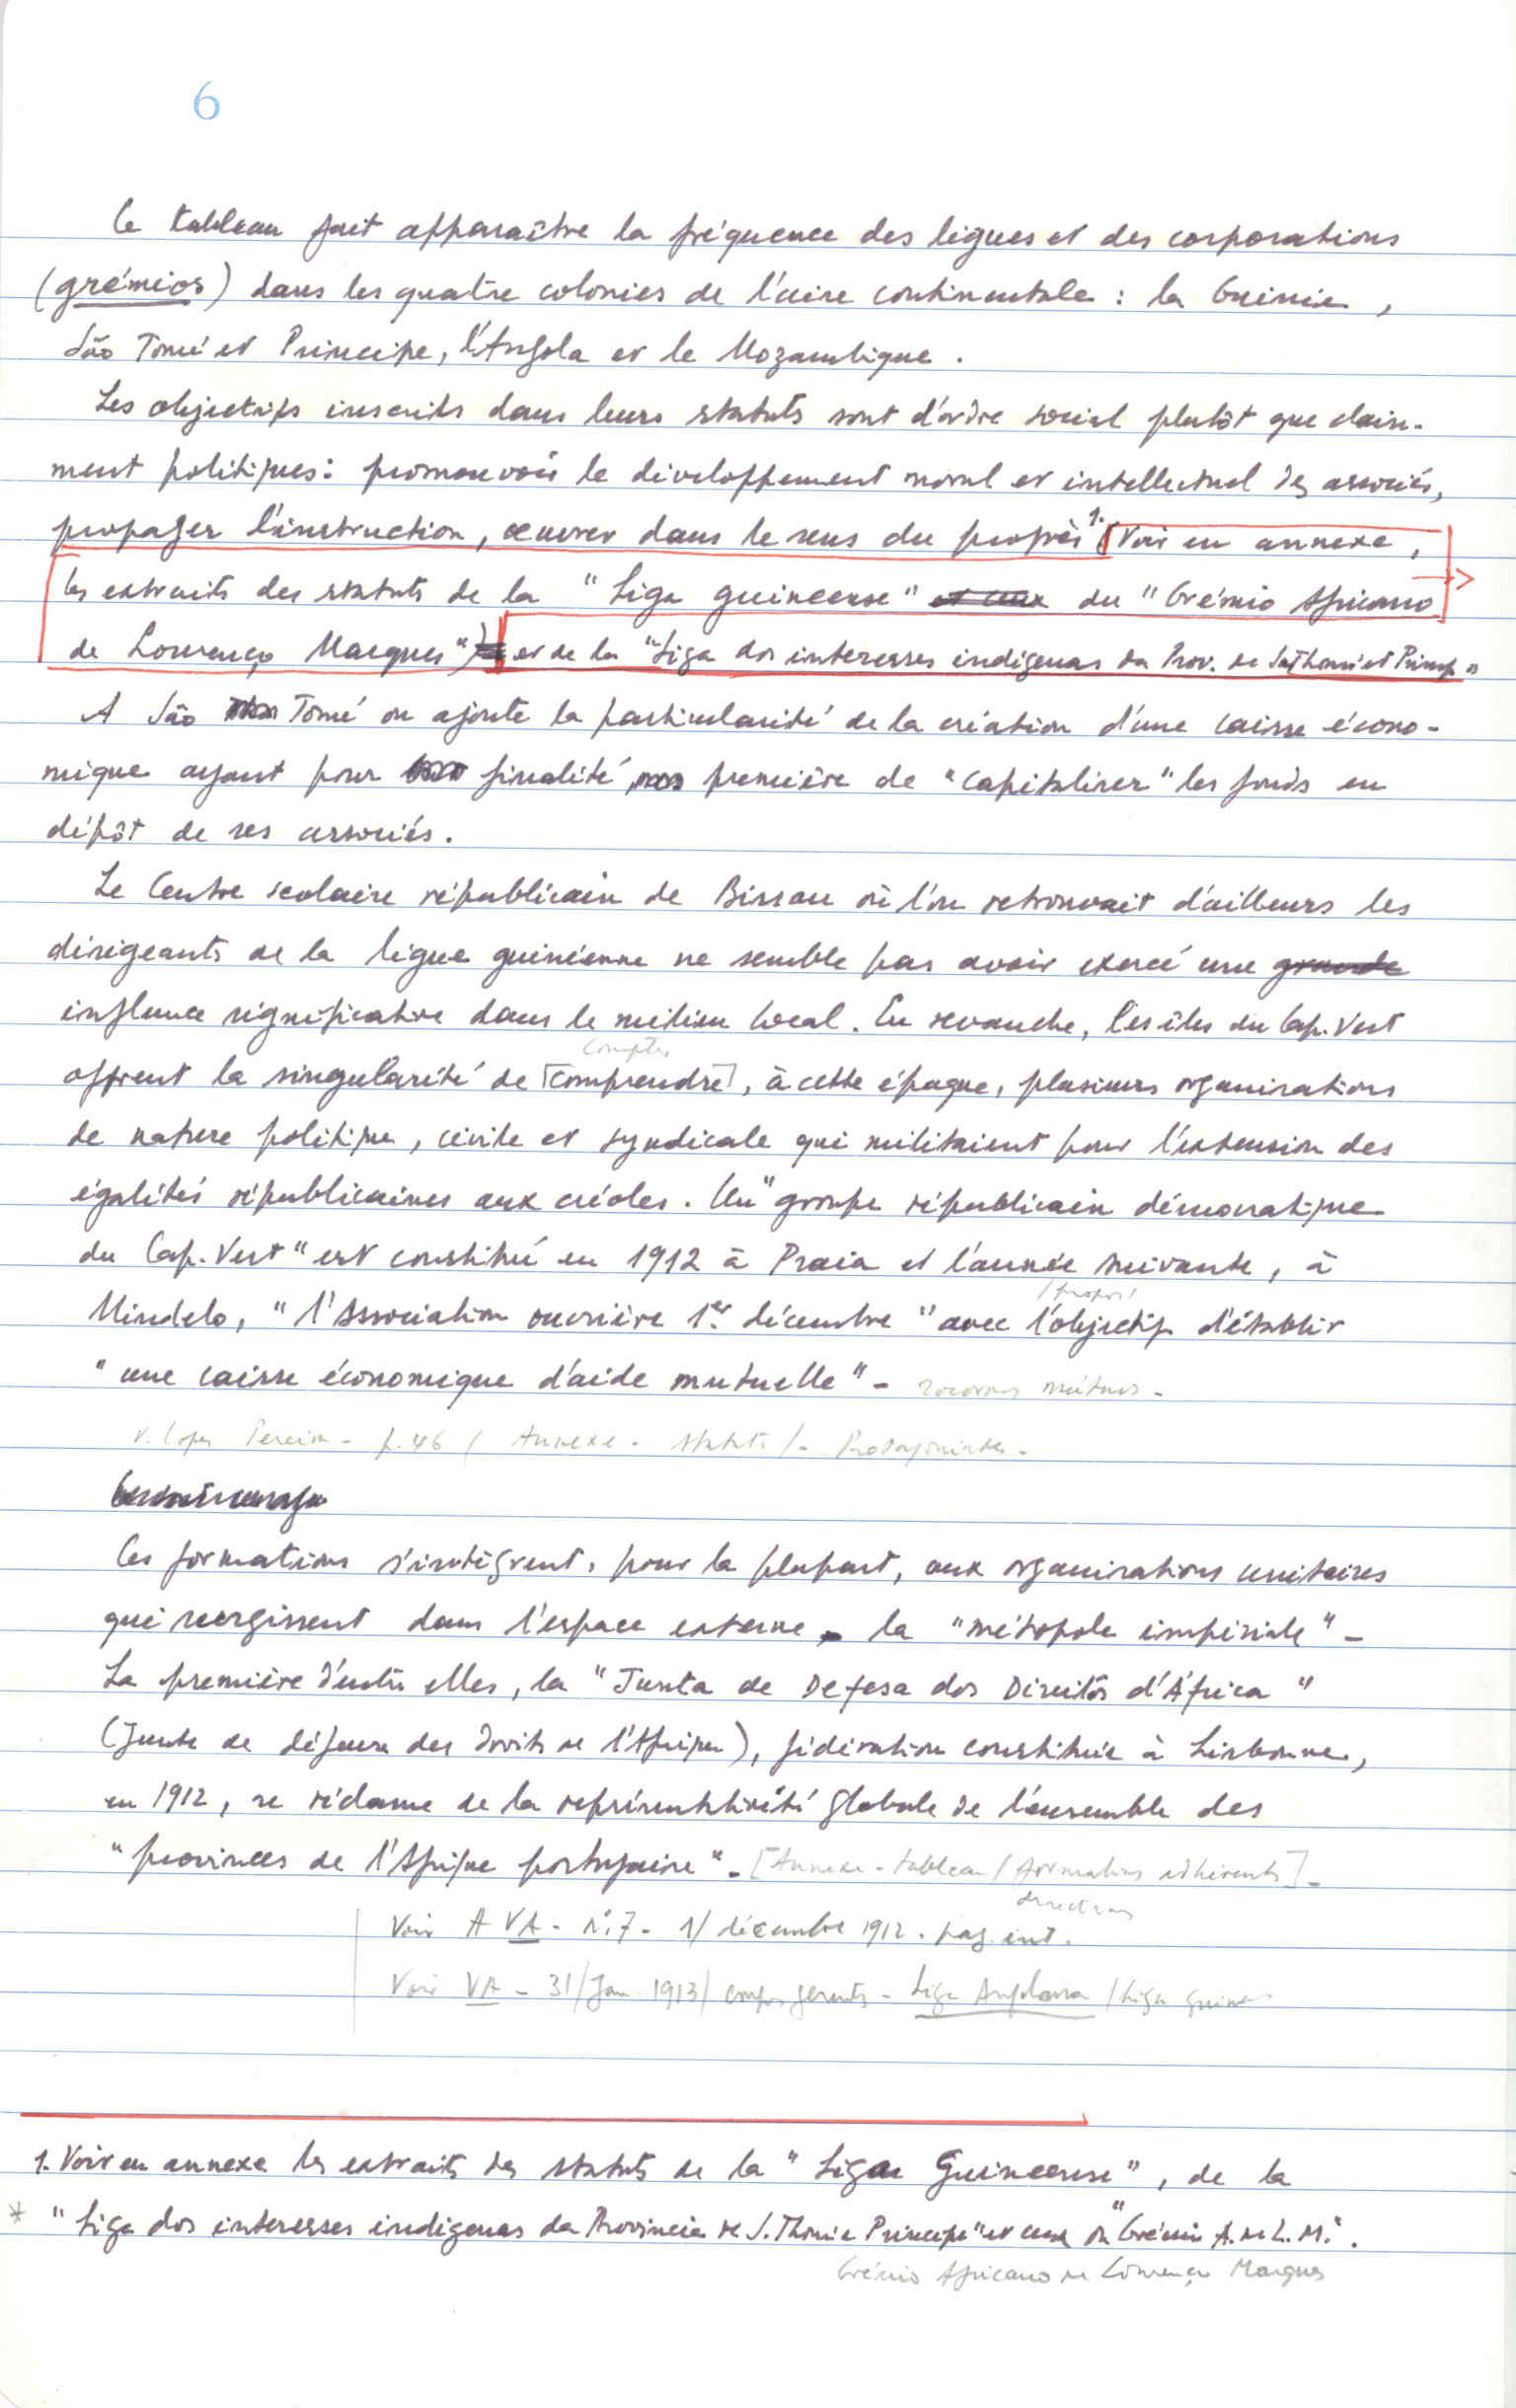 6
Ce tableau fait apparaître la fréquence des ligues et des corporations
(grémios) dans les quatre colonies de l'aire continentale : la Guinée,
São Tomé et Principe, l'Angola et le Mozambique.
Les objectifs inscrits dans leurs statuts sont d'ordre social plutôt que claire-
ment politiques : promouvoir le développement moral et intellectuel des associés,
propager l'instruction, œuvrer dans le sens du progrès 1. (Voir en annexe,
les extraits des statuts de la "Liga guineense" et ceux du "Grémio Africano
de Lourenço Marques") et de la "Liga dos interesses indigenas da Prov. de S. Thomé et Princip"
A São Tomé on ajoute la particularité de la création d'une caisse écono-
mique ayant pour finalité première de "capitaliser" les fonds en
dépôt de ses associés.
Le Centre scolaire républicain de Bissau où l'on retrouvait d'ailleurs les
dirigeants de la ligue guinéenne ne semble pas avoir exercé une grande
influence significative dans le milieu local. En revanche, les îles du Cap-Vert
compter
offrent la singularité de [comprendre], à cette époque, plusieurs organisations
de nature politique, civile et syndicale qui militaient pour l'extension des
égalités républicaines aux créoles. Un "groupe républicain démocratique
du Cap-Vert" est constitué en 1912 à Praia et l'année suivante, à
/propos/
Mindelo, "l'Association ouvrière 1er décembre" avec l'objectif d'établir
"une caisse économique d'aide mutuelle" - secours mutuels -
V. Lopes Pereira - p. 46 / Annexe - Statuts / - Protagonistes -
Ces formations s'intègrent, pour la plupart, aux organisations unitaires
qui surgissent dans l'espace externe - la "métropole impériale" -
La première d'entre elles, la "Junta de Defesa dos Direitos d'Africa"
(Junte de défense des droits de l'Afrique), fédération constituée à Lisbonne,
en 1912, se réclame de la représentativité globale de l'ensemble des
"provinces de l'Afrique portugaise" - [Annexe - tableau / formations adhérents] -
directions
Voir A VA - N°. 7 - 1/ décembre 1912 . pag. int.
Voir VA - 31/Jan 1913 / corpos gerentes - Liga Angolana / Liga Guineense
1. Voir en annexe les extraits des statuts de la "Liga Guineense", de la
* "Liga dos interesses indigenas da Provincia de S. Thomé e Principe" et ceux du "Grémio A. de L. M.".
Grémio Africano de Lourenço Marques